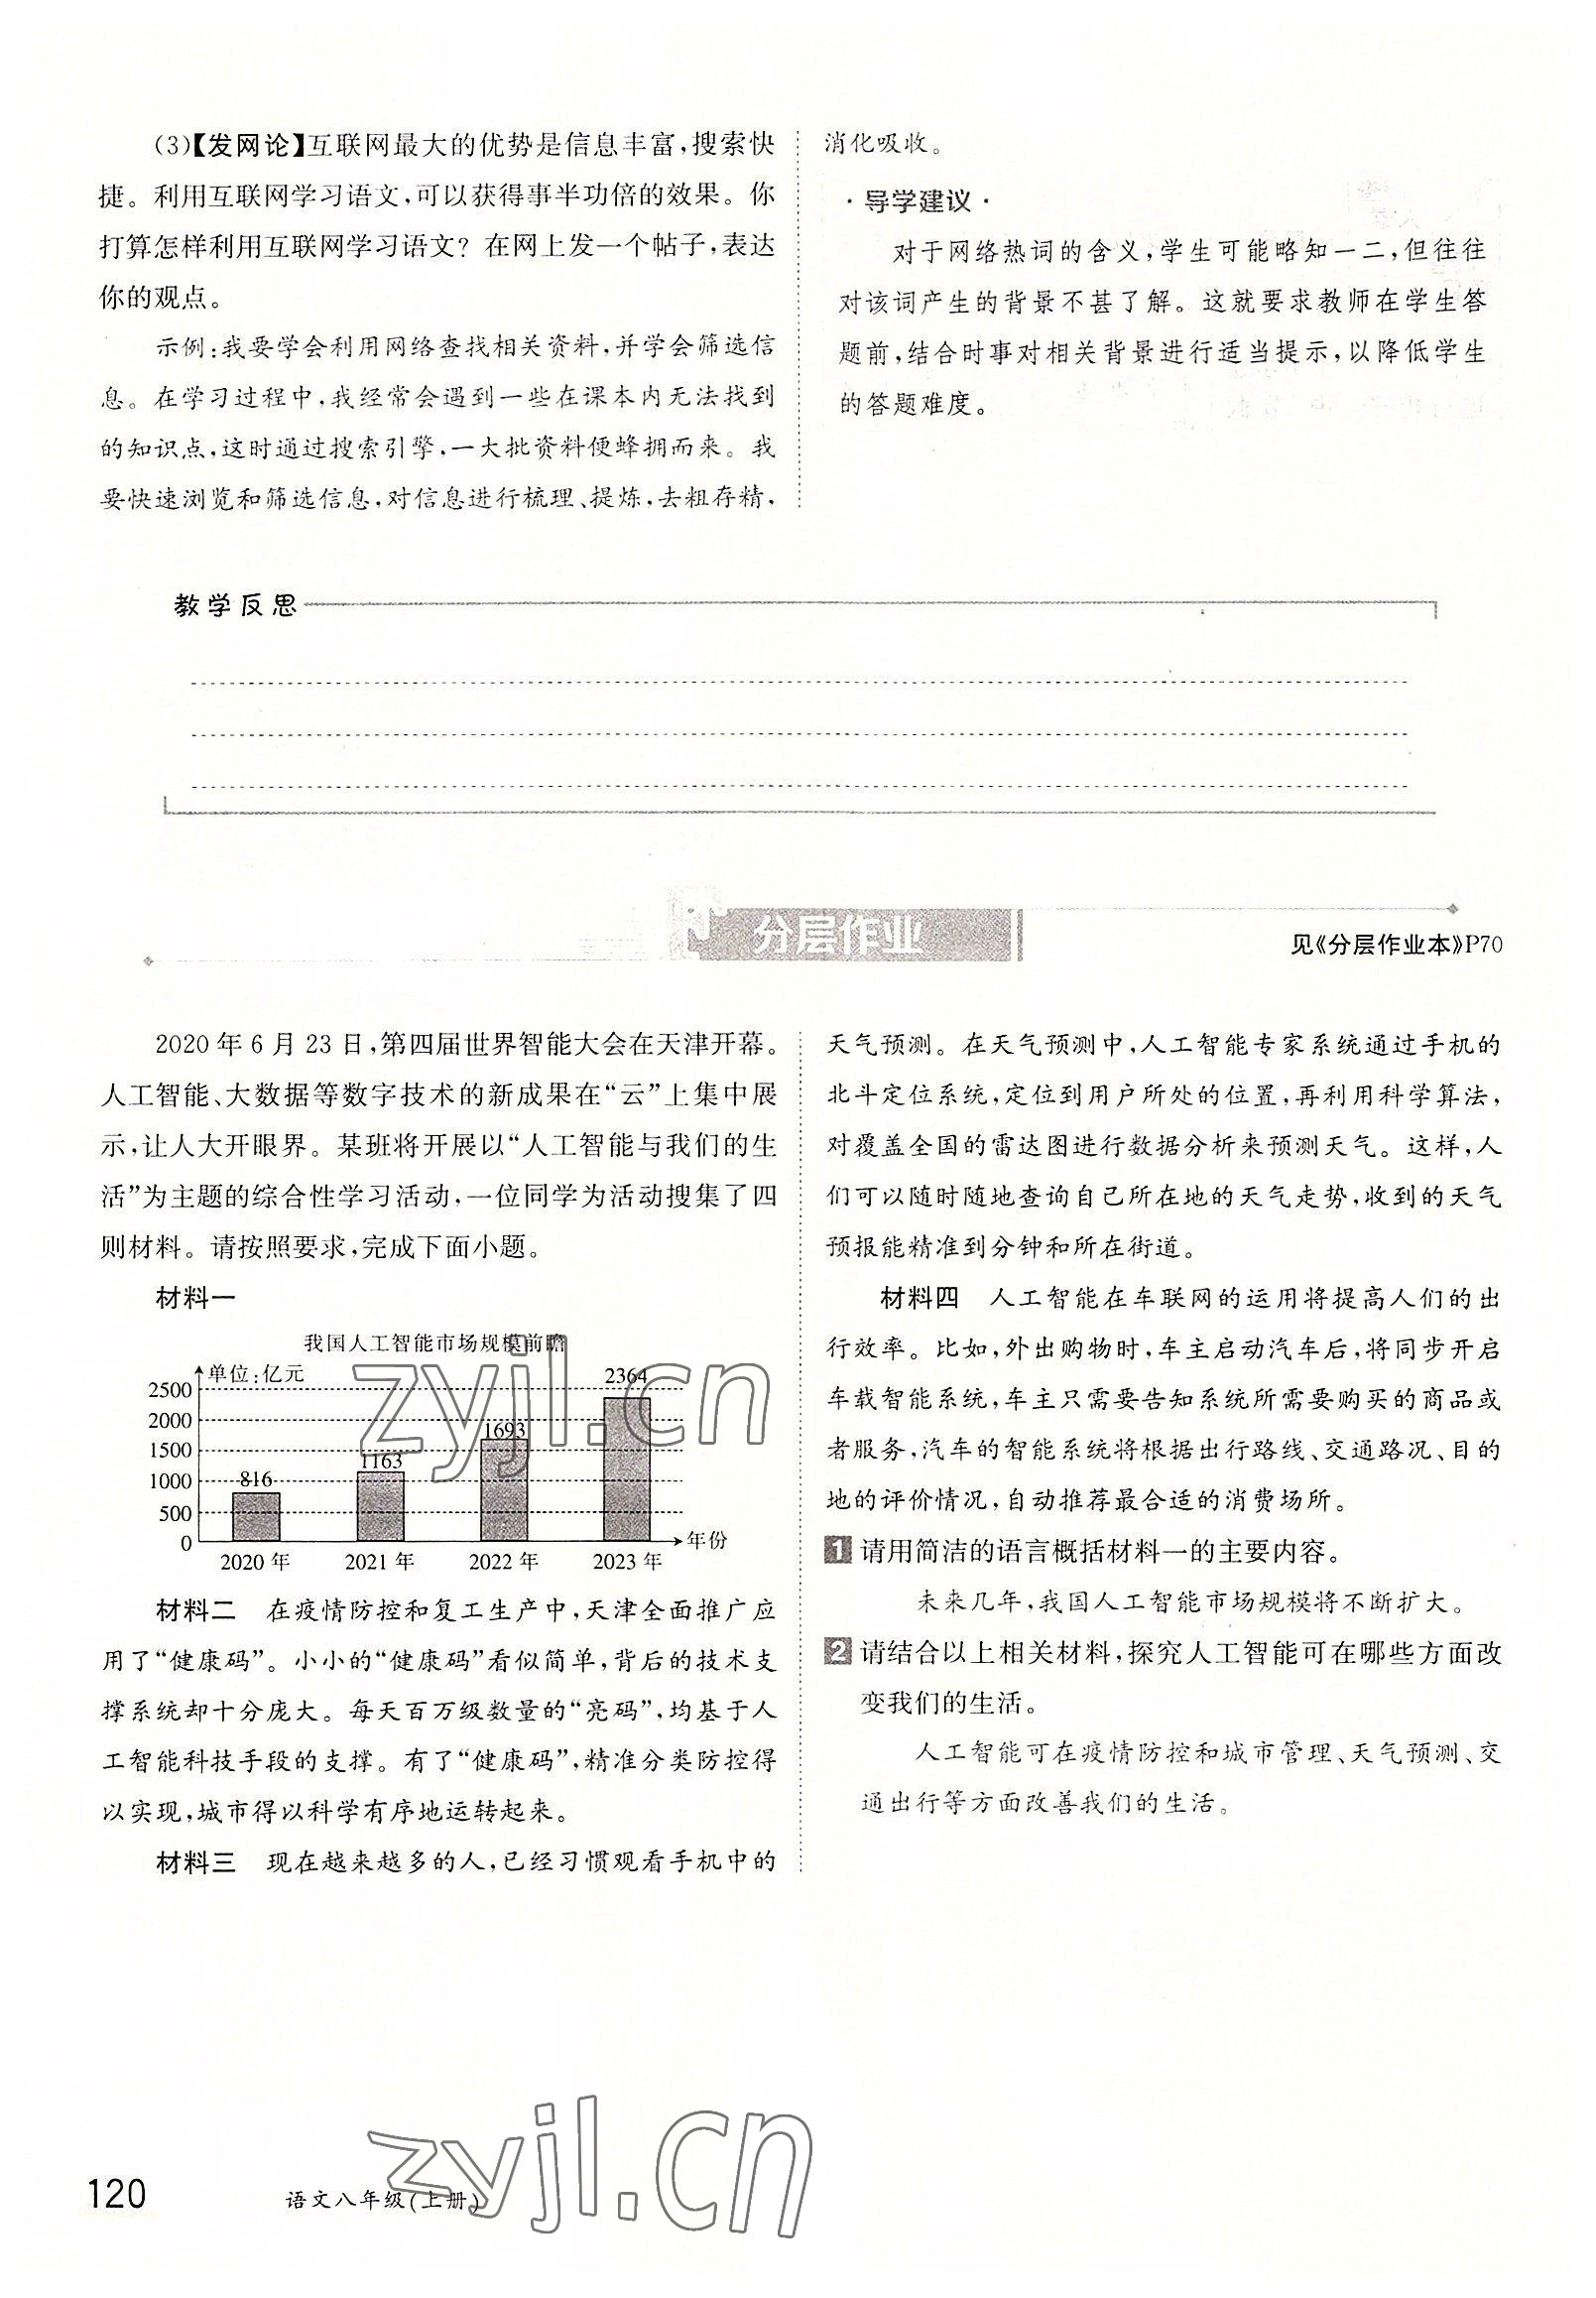 (3)【发网论】互联网最大的优势是信息丰富,搜索快
捷。利用互联网学习语文,可以获得事半功倍的效果。你
打算怎样利用互联网学习语文?在网上发一个帖子,表达
你的观点。
示例:我要学会利用网络查找相关资料,并学会筛选信
息。在学习过程中,我经常会遇到一些在课本内无法找到
的知识点,这时通过搜索引擎,一大批资料便蜂拥而来。我
要快速浏览和筛选信息,对信息进行梳理、提炼,去粗存精,
消化吸收。
·导学建议·
对于网络热词的含义,学生可能略知一二,但往往
对该词产生的背景不甚了解。这就要求教师在学生答
题前,结合时事对相关背景进行适当提示,以降低学生
的答题难度。
教学反思
分层作业
见《分层作业本》P70
2020年6月23日,第四届世界智能大会在天津开幕。
人工智能、大数据等数字技术的新成果在“云”上集中展
示,让人大开眼界。某班将开展以“人工智能与我们的生
活”为主题的综合性学习活动,一位同学为活动搜集了四
则材料。请按照要求,完成下面小题。
材料一
我国人工智能市场规模前瞻
单位:亿元
2500
2000
1500
1000
500
0
816
1163
1693
2364
2020年
2021年
2022年
2023年
年份
材料二 在疫情防控和复工生产中,天津全面推广应
用了“健康码”。小小的“健康码”看似简单,背后的技术支
撑系统却十分庞大。每天百万级数量的“亮码”,均基于人
工智能科技手段的支撑。有了“健康码”,精准分类防控得
以实现,城市得以科学有序地运转起来。
材料三 现在越来越多的人,已经习惯观看手机中的
天气预测。在天气预测中,人工智能专家系统通过手机的
北斗定位系统,定位到用户所处的位置,再利用科学算法,
对覆盖全国的雷达图进行数据分析来预测天气。这样,人
们可以随时随地查询自己所在地的天气走势,收到的天气
预报能精准到分钟和所在街道。
材料四 人工智能在车联网的运用将提高人们的出
行效率。比如,外出购物时,车主启动汽车后,将同步开启
车载智能系统,车主只需要告知系统所需要购买的商品或
者服务,汽车的智能系统将根据出行路线、交通路况、目的
地的评价情况,自动推荐最合适的消费场所。
1 请用简洁的语言概括材料一的主要内容。
未来几年,我国人工智能市场规模将不断扩大。
2 请结合以上相关材料,探究人工智能可在哪些方面改
变我们的生活。
人工智能可在疫情防控和城市管理、天气预测、交
通出行等方面改善我们的生活。
zyjl.cn
zyjl.cn
120
语文八年级(上册)